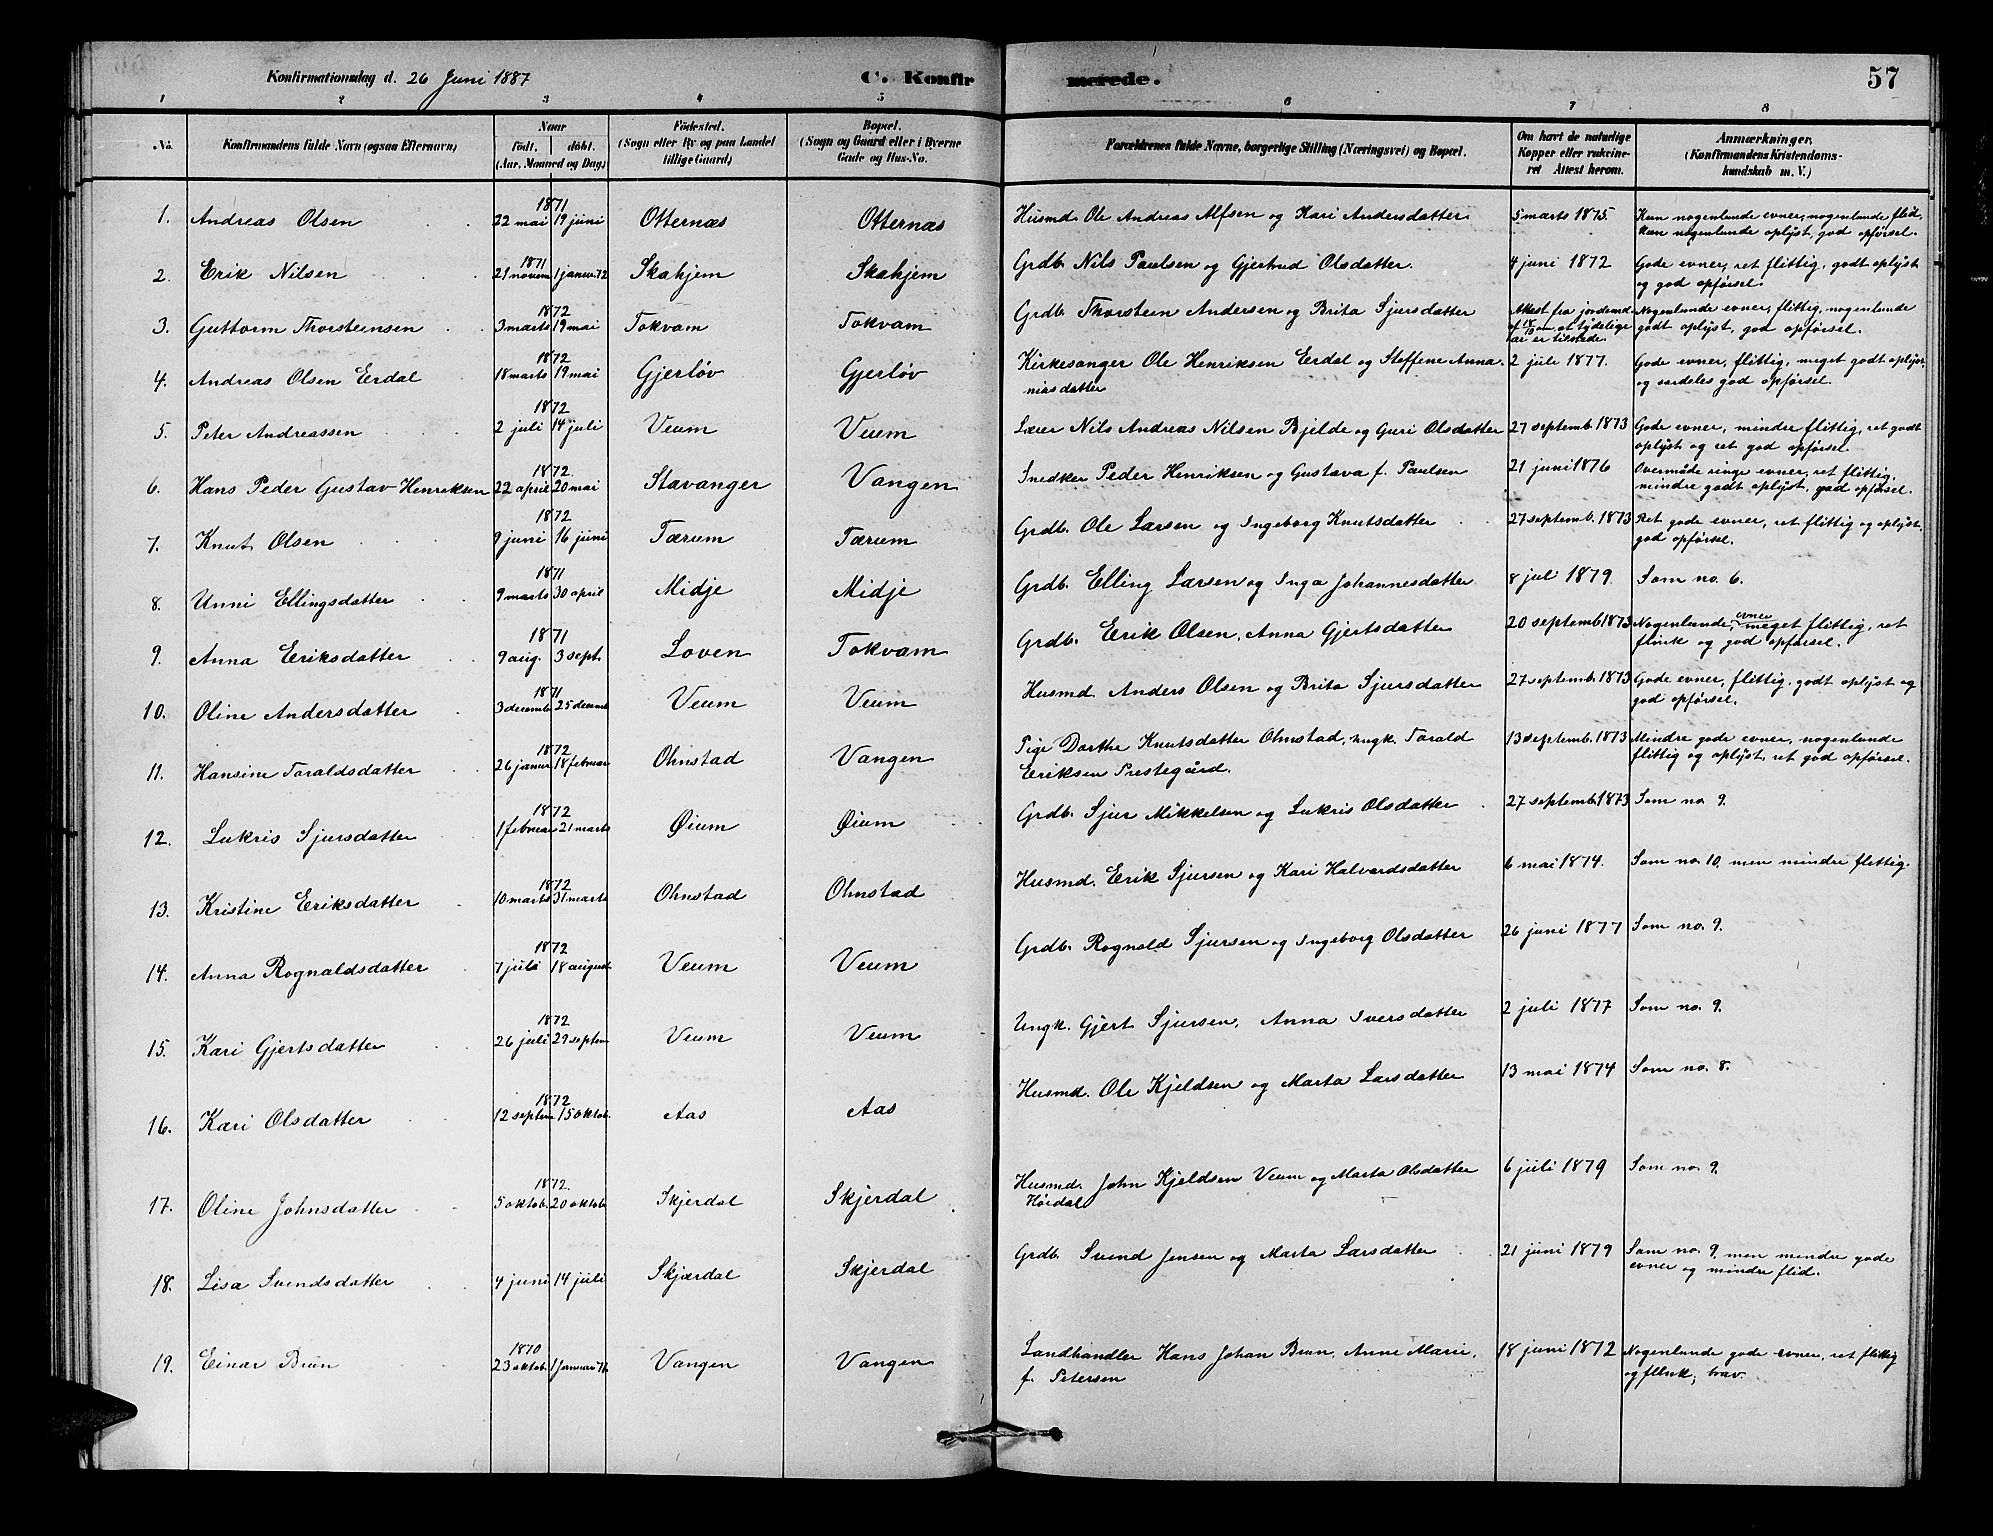 Konfirmationsdag d. 26 Juni 1887
C. Konfirmerede.
57
1 2 3 4 5 6 7 8
No. Konfirmandens fulde Navn (ogsaa Efternavn) Naar født. døbt. (Aar, Maaned og Dag) Födested. (Sogn eller By og paa Landet tillige Gaard) Bopæl. (Sogn og Gaard eller i Byerne Gade og Hus-No. Forældrenes fulde Navne, borgerlige Stilling (Næringsvei) og Bopæl. Om havt de naturlige Kopper eller vakcineret Attest herom. Anmærkninger, (Konfirmandens Kristendomskundskab m. V.)
1. Andreas Olsen 1871 22 mai 19 juni Otternæs Otternæs Husmd. Ole Andreas Alfsen og Kari Andersdatter. 5 marts 1875. Kun nogenlunde evner, nogenlunde flid,
kun nogenlunde oplyst, god opførsel.
2. Erik Nilsen 1871 21 novem 1 janu. 72 Skahjem Skahjem Grdb. Nils Paulsen og Gjertrud Olsdatter. 4 juni 1872 Gode evner, ret flittig, godt oplyst
og god opførsel.
3. Guttorm Thorsteinsen 1872 3 marts 19 mai Tokvam Tokvam Grdb. Thorstein Andersen og Brita Sjursdatter Attest fra jordemd. Nogenlunde evner, flittig, nogenlunde
af 18/10 om at tydelige godt oplyst, god opførsel.
ar er tilstede.
4. Andreas Olsen Erdal 1872 18 marts 19 mai Gjerløv Gjerløv Kirkesanger Ole Henriksen Erdal og Steffene Anna- 2 juli 1877. Gode evner, flittig, meget godt oplyst,
niasdatter og særdeles god opførsel.
5. Peter Andreassen 1872 2 juli 14 juli Veum Veum Lærer Nils Andreas Nilsen Bjelde og Guri Olsdatter 27 septemb. 1873 Gode evner, mindre flittig, ret godt
oplyst og ret god opførsel.
6. Hans Peder Gustav Henriksen 1872. 22 april 20 mai Stavanger Vangen Snedker Peder Henriksen og Gustava f. Paulsen 21 juni 1876 Overmåde ringe evner, ret flittig,
mindre godt oplyst, god opførsel.
7. Knut Olsen 1872 9 juni 16 juni Tærum Tærum Grdb. Ole Larsen og Ingeborg Knutsdatter 27 septemb. 1873 Ret gode evner, ret flittig og oplyst,
god opførsel.
8. Unni Ellingsdatter 1871 9 marts 30 april Midje Midje Grdb. Elling Larsen og Inga Johannesdatter 8 jul 1879. Som no. 6.
9. Anna Eriksdatter 1871 9 aug. 3 sept. Loven Tokvam Grdb. Erik Olsen, Anna Gjertsdatter 20 septemb 1873 Nogenlunde evner, meget flittig, ret
flink og god opførsel.
10. Oline Andersdatter 1871 3 decemb 25 decemb Veum Veum Husmd. Anders Olsen og Brita Sjursdatter 27 septemb. 1873 Gode evner, flittig, godt oplyst og
god opførsel.
11. Hansine Taraldsdatter 1872 26 janur 18 februar Ohnstad Vangen Pige Dorthe Knutsdatter Ohnstad, ungk. Tarald 13 septemb. 1873 Mindre gode evner, nogenlunde
Eriksen Prestegård. flittig og oplyst, ret god opførsel.
12. Lukris Sjursdatter 1872 1 februar 21 marts Øium Øium Grdb. Sjur Mikkelsen og Lukris Olsdatter 27 septemb. 1873 Som no 9.
13. Kristine Eriksdatter 1872 10 marts 31 marts Ohnstad Ohnstad Husmd. Erik Sjursen og Kari Halvardsdatter 6 mai 1874. Som no. 10, men mindre flittig.
14. Anna Rognaldsdatter 1872 7 juli 18 august Veum Veum Grdb. Rognald Sjursen og Ingeborg Olsdatter 26 juni 1877 Som no. 9.
15. Kari Gjertsdatter 1872 26 juli 29 septem Veum Veum Ungk. Gjert Sjursen, Anna Iversdatter 2 juli 1877 Som no. 9.
16. Kari Olsdatter 1872 12 septem 15 oktob. Aas Aas Husmd. Ole Kjeldsen og Marta Larsdatter 13 mai 1874 Som no. 8.
17. Oline Johnsdatter 1872. 5 oktob. 20 oktob. Skjerdal Skjerdal Husmd. John Kjeldsen Veum og Marta Olsdatter 6 juli 1879 Som no. 9.
Høidal
18. Lisa Svendsdatter 4 juni 14 juli Skjærdal Skjerdal Grdb. Svend Jensen og Marta Larsdatter 21 juni 1879 Som no. 9, men mindre gode
evner og mindre flid.
19. Einar Brun 1870 23 oktob. 1 januar 71. Vangen Vangen Landhandler Hans Johan Brun, Anne Marie, 18 juni 1872 Nogenlunde gode evner, ret flittig
f. Petersen og flink, brav.